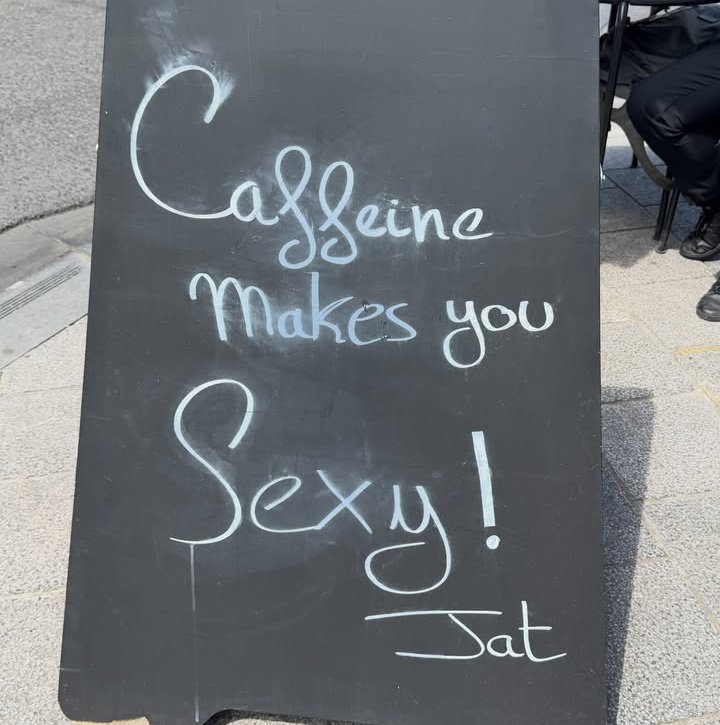 Caffeine
Makes you
Sexy!
Jat